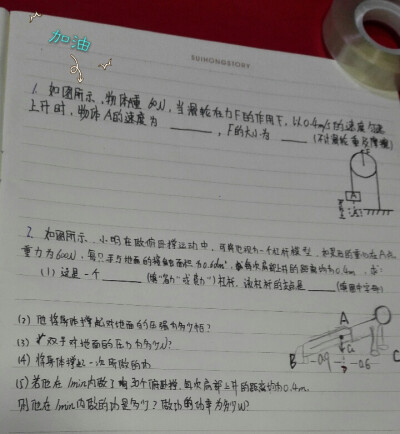 加油
SUIHONGSTORY
1. 如图所示,物体A重60N,当滑轮在力F的作用下,以0.4m/s的速度匀速
上升时,物体A的速度为______,F的大小为______(不计滑轮重及摩擦)
F
A
2. 如图所示,小明在做俯卧撑运动中,可将他视为一个杠杆模型,如果他的重心在A点,
重力为600N,
(1)这是一个______(填"省力"或"费力")杠杆,该杠杆的支点是______(填图中字母)
(2)他将身体撑起对地面的压强为多少帕?
(3)双手对地面的压力为多少N?
(4)将身体撑起一次所做的功
(5)若他在1min内做了30个俯卧撑,每次肩部上升的距离均为0.4m,
则他在1min内做的功是多少?做功的功率为多少W?
A
B
0.9
G
0.6
C